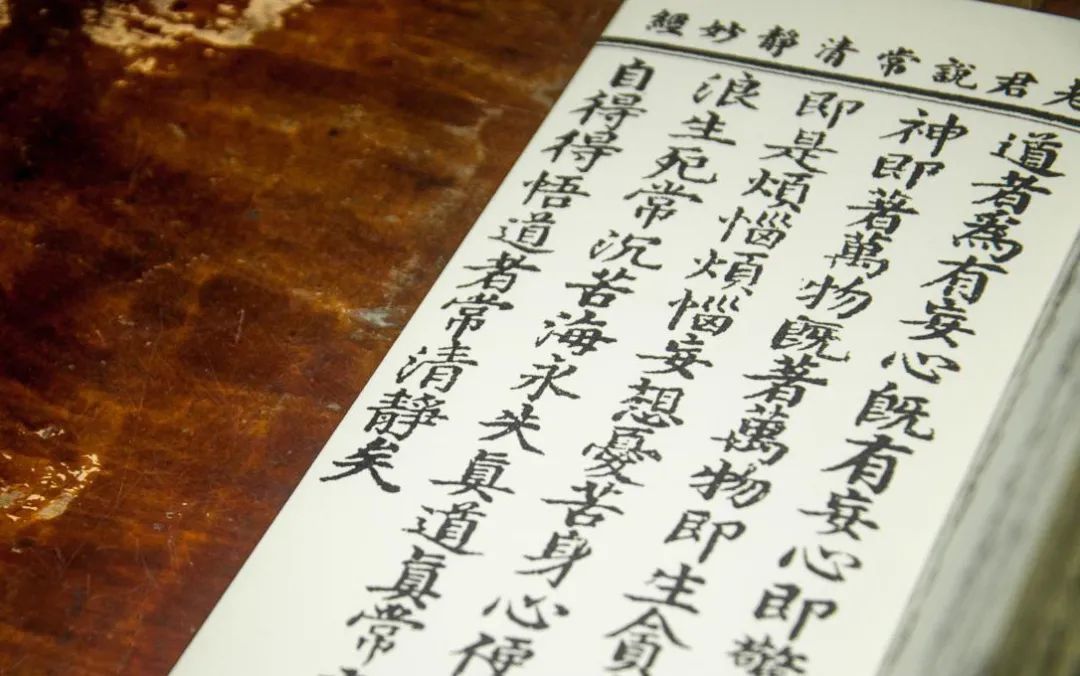 老君說常清靜妙經
道者為有妄心既有妄心即驚
神即著萬物既著萬物即生貪
即是煩惱煩惱妄想憂苦身心便
浪生死常沉苦海永失眞道眞常
自得得悟道者常清靜矣